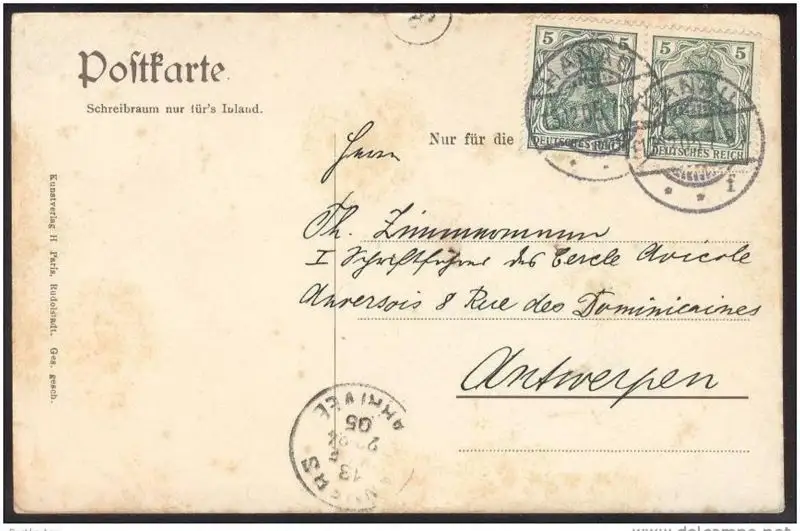 Postkarte.
Schreibraum nur für's Inland.
Nur für die
5 5
DEUTSCHES REICH
5 5
DEUTSCHES REICH
HANAU
HANAU
* *
f
Herrn
Th. Zimmermann
I Schriftführer des Cercle Avicole
Anversois 8 Rue des Dominicaines
Antwerpen
Kunstverlag H. Paris, Rudolstadt. Ges. gesch.
ARRIVEE
05
13